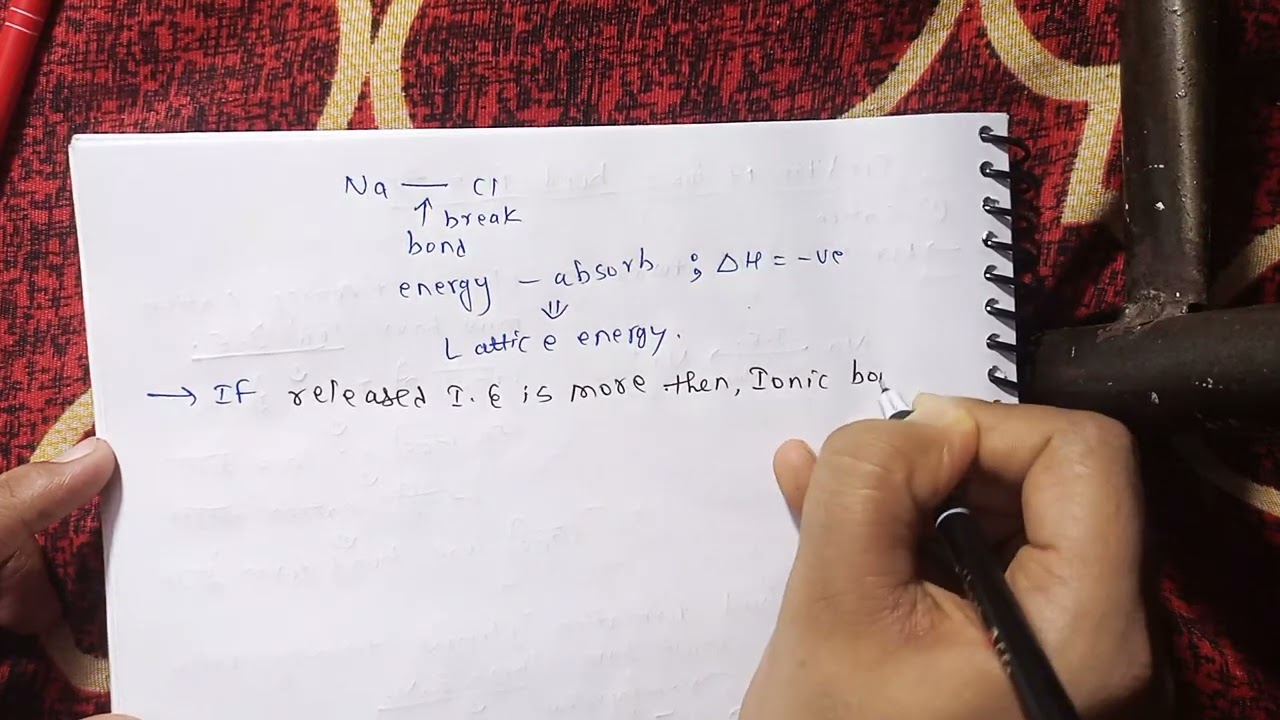 Na — Cl
↑ break
bond
energy - absorb ; ΔH = -ve
⇓
Lattice energy.
→ If released I.E is more then, Ionic bo